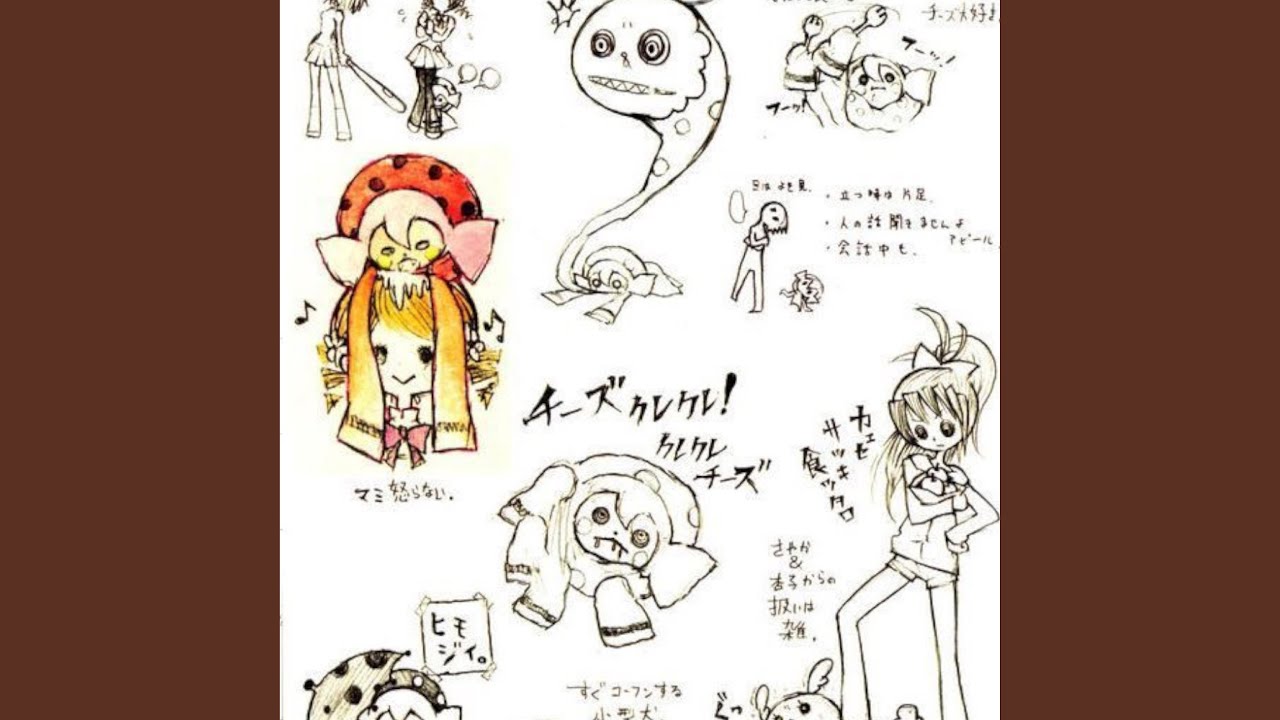 チーズ大好き
フーッ!
フーッ!
目はよそ見。
・立つ時は片足。
・人の話聞きませんよ
アピール。
・会話中も。
チーズクレクレ!
クレクレ
チーズ
マミ怒らない。
カェセ
サッキ
食ッタロ
さやか
&
杏子からの
扱いは
雑。
ヒモ
ジイ。
すぐコーフンする
小型犬
ぐっ